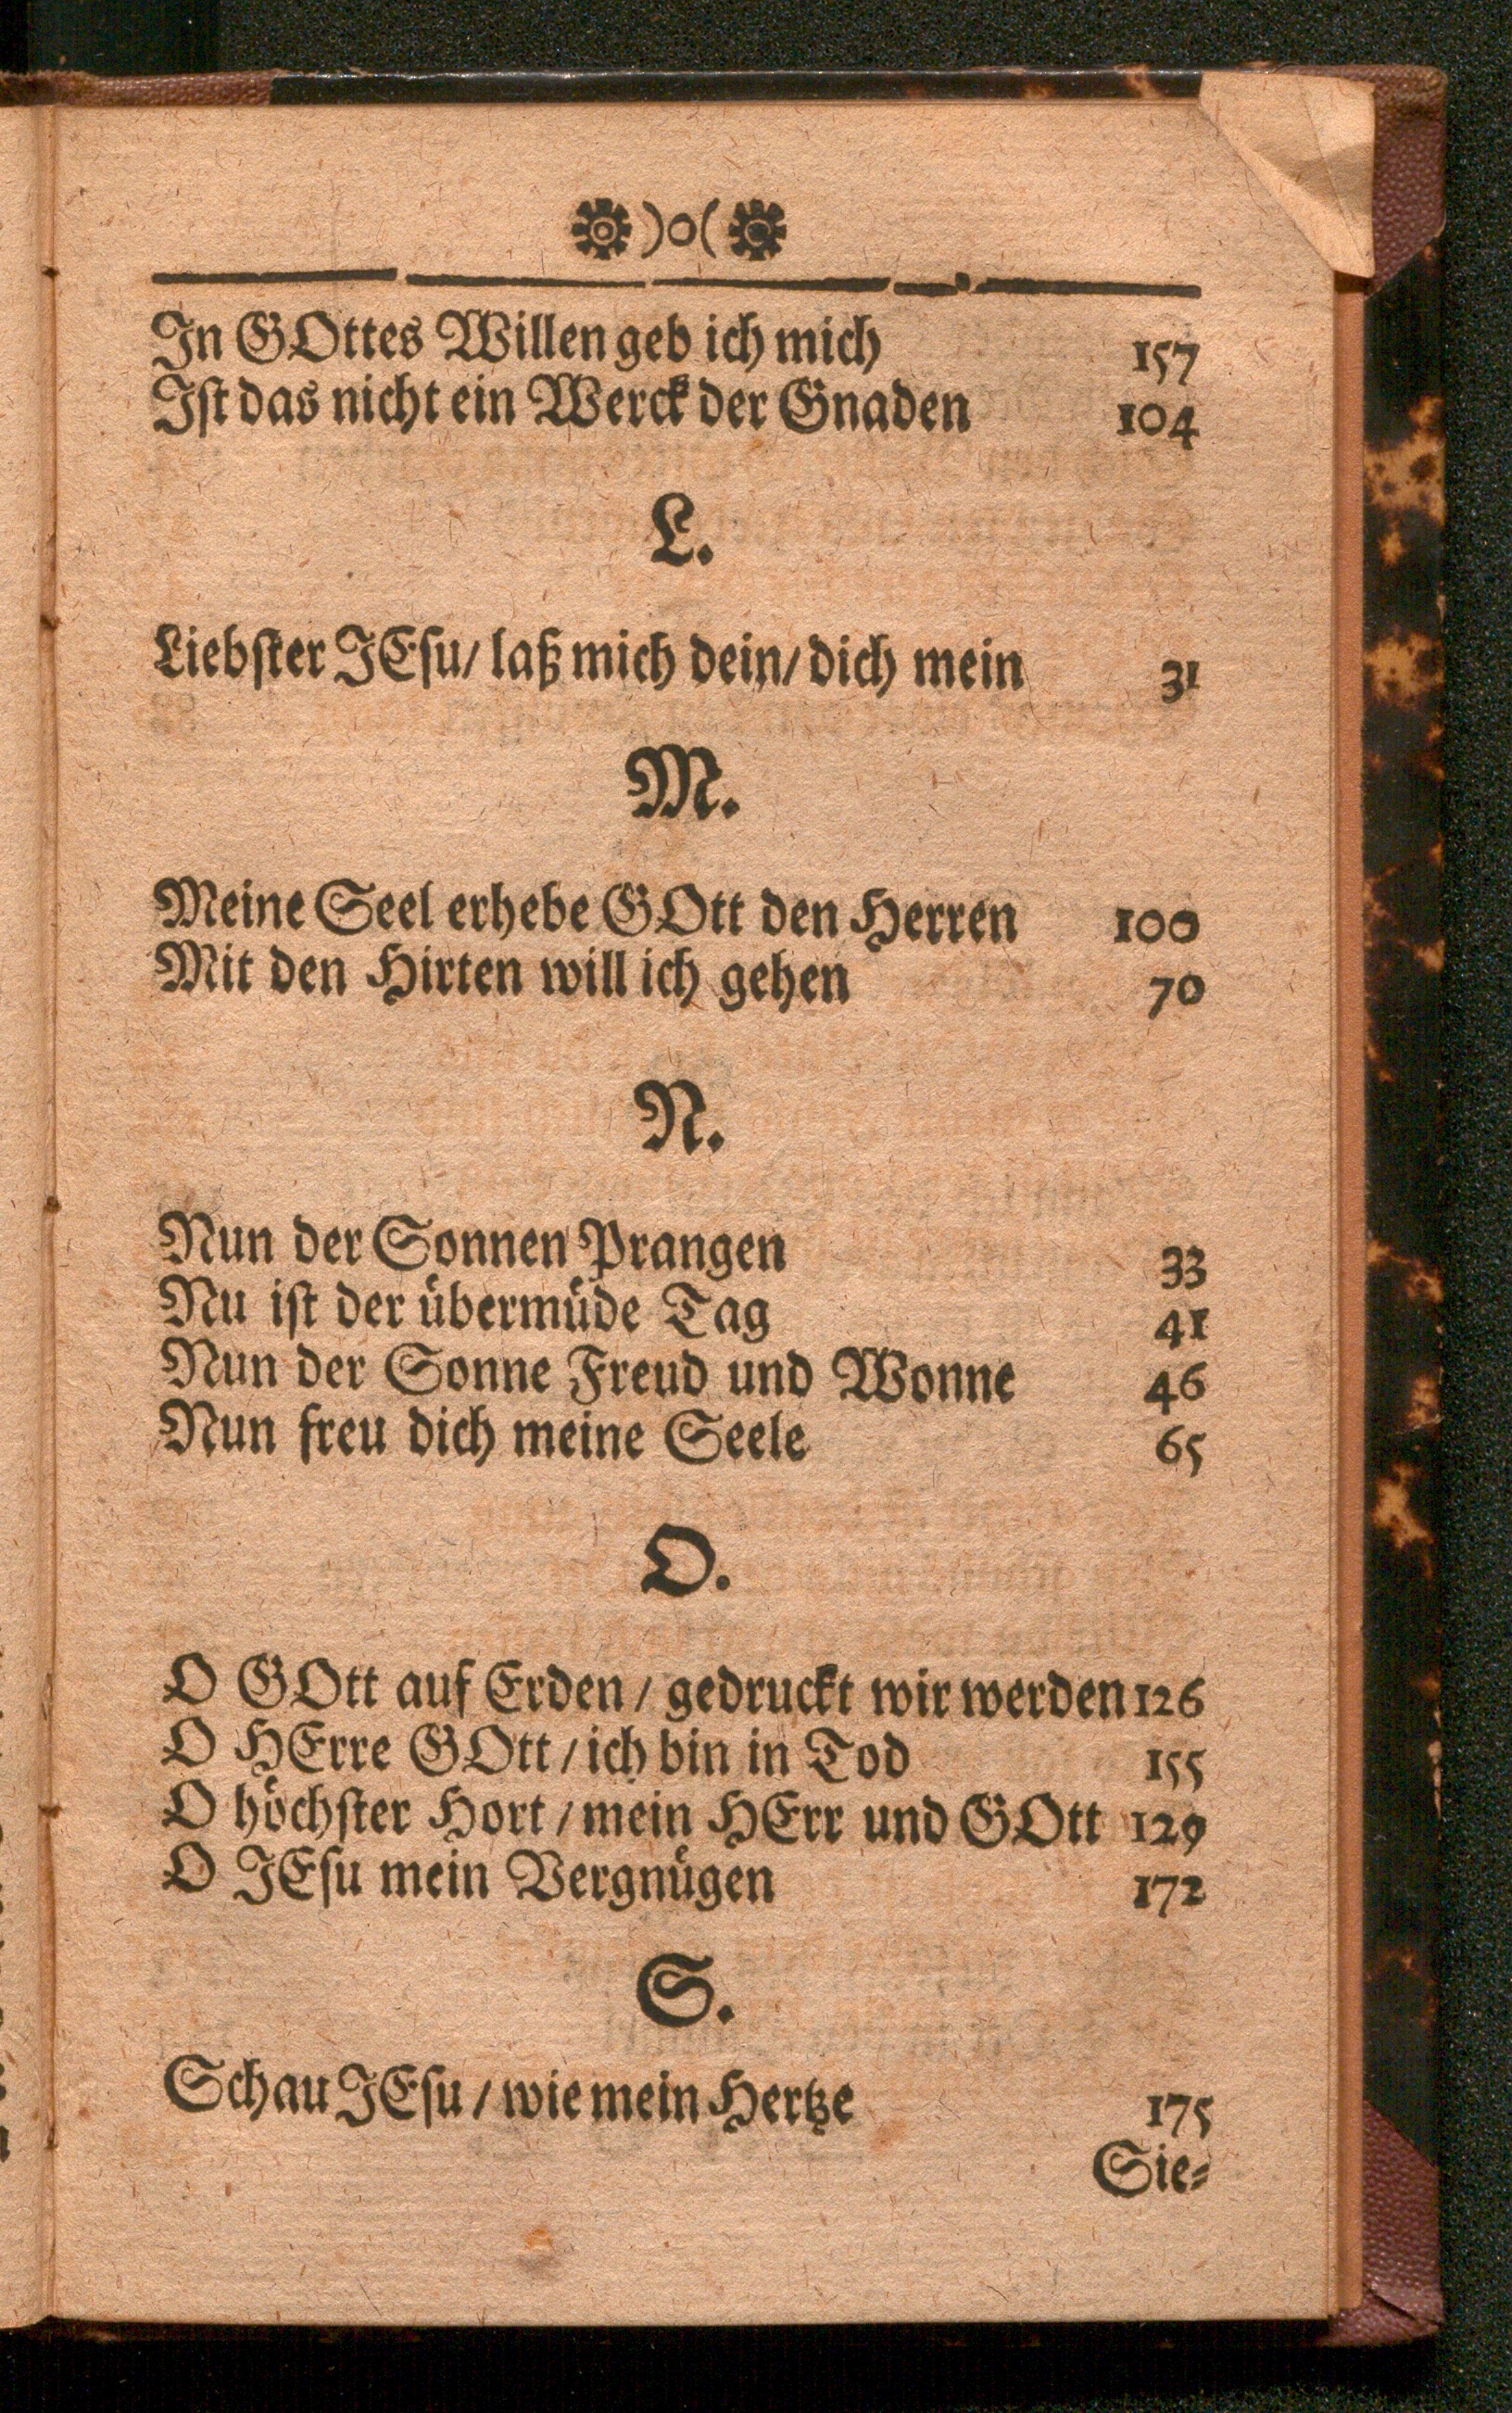 )o(
In GOttes Willen geb ich mich 157
Ist das nicht ein Werck der Gnaden 104
L.
Liebster JEsu/ laß mich dein/ dich mein 31
M.
Meine Seel erhebe GOtt den Herren 100
Mit den Hirten will ich gehen 70
N.
Nun der Sonnen Prangen 33
Nu ist der übermüde Tag 41
Nun der Sonne Freud und Wonne 46
Nun freu dich meine Seele 65
O.
O GOtt auf Erden / gedruckt wir werden 126
O HErre GOtt / ich bin in Tod 155
O höchster Hort / mein HErr und GOtt 129
O JEsu mein Vergnügen 172
S.
Schau JEsu / wie mein Hertze 175
Sie-